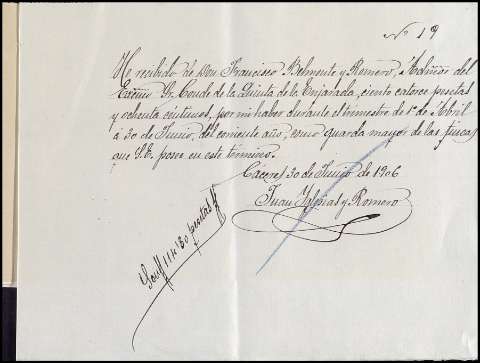 Nº 19
He recibido de Don Francisco Belmonte y Romero, Admor. del
Excmo Sr. Conde de la Quinta de la Enjarada, ciento catorce pesetas
y ochenta céntimos, por mi haber durante el trimestre de 1º de Abril
á 30 de Junio, del corriente año, como guarda mayor de las fincas
que S.E. posee en este término.
Cáceres 30 de Junio de 1906
Juan Iglesias y Romero
Son 114'80 pesetas